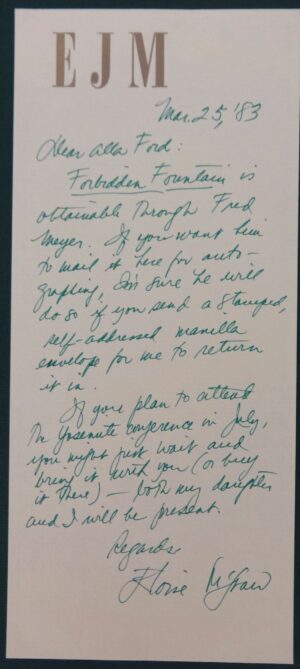 EJM
Mar. 25, '83
Dear Alla Ford:
Forbidden Fountain is
obtainable through Fred
Meyer. If you want him
to mail it here for auto-
graphing, I'm sure he will
do so if you send a stamped,
self-addressed manilla
envelope for me to return
it in.
If you plan to attend
the Yosemite conference in July,
you might just wait and
bring it with you (or buy
it there) — both my daughter
and I will be present.
Regards
Eloise McGraw